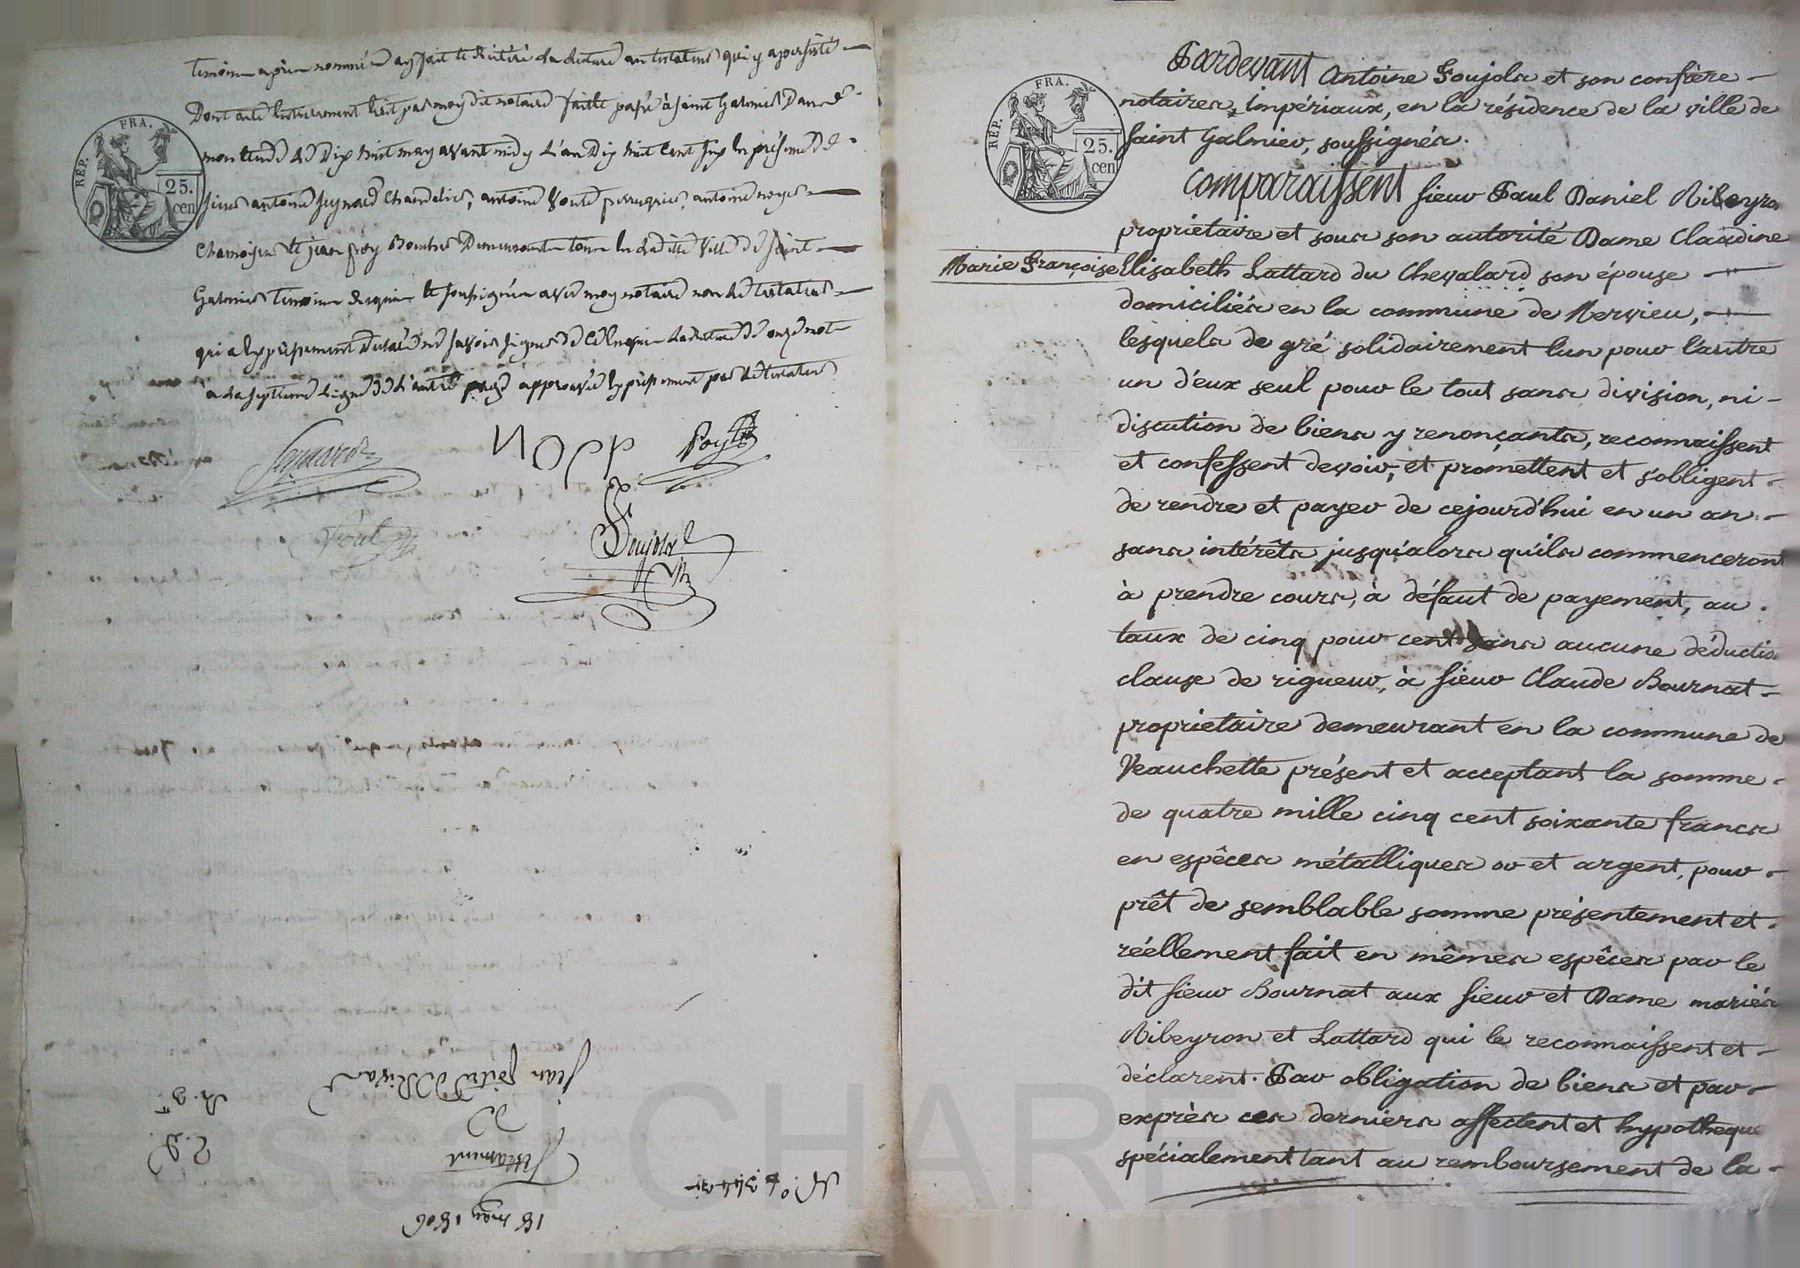 temoins apres nommés ay fait et réitéré la lecture au testateur qui y a persisté
Dont acte entièrement écrit par moy dit notaire faitte passé à Saint Galmier Dans
mon étude le Dix huit may avant midy l'an Dix huit cent six en présence de
sieurs antoine Seynard Chandelier, antoine Pouté perruquier, antoine noyer
Chamoiseur et jean poy Boucher Demeurants tous en la ditte ville de Saint
Galmier temoins requis et soussignés avec moy notaire non le testateur
qui a expressement déclaré ne savoir signer de ce enquis
a la septieme ligne de l'autre page approuvée expressement par le testateur
REP. FRA.
25. cen
Noer
Poy
Soujolas
Jean
Testament
18 may 1806
Pardevant Antoine Soujolas et son confrère
notaires, impériaux, en la résidence de la ville de
Saint Galmier, soussignés.
Comparaissent sieur Paul Daniel Ribeyron
propriétaire et sous son autorité Dame Claudine
Marie Françoise Elisabeth Lattard du Chevalard son épouse
domiciliés en la commune de Nervieu,
lesquels de gré solidairement l'un pour l'autre
un d'eux seul pour le tout sans division, ni
discution de biens y renonçants, reconnaissent
et confessent devoir, et promettent et s'obligent
de rendre et payer de cejourd'hui en un an
sans intérêts jusqu'alors qu'ils commenceront
à prendre cours, à défaut de payement, au
taux de cinq pour cent sans aucune déduction
clause de rigueur, à sieur Claude Bournat
propriétaire demeurant en la commune de
Veauchette présent et acceptant la somme
de quatre mille cinq cent soixante francs
en espêces métalliques or et argent, pour
prêt de semblable somme présentement et
réellement fait en mêmes espêces par le
dit sieur Bournat aux sieur et Dame mariés
Ribeyron et Lattard qui le reconnaissent et
déclarent. Par obligation de biens et par
exprès ces derniers affectent et hypotheque
spécialement tant au remboursement de la
REP. FRA.
25. cen